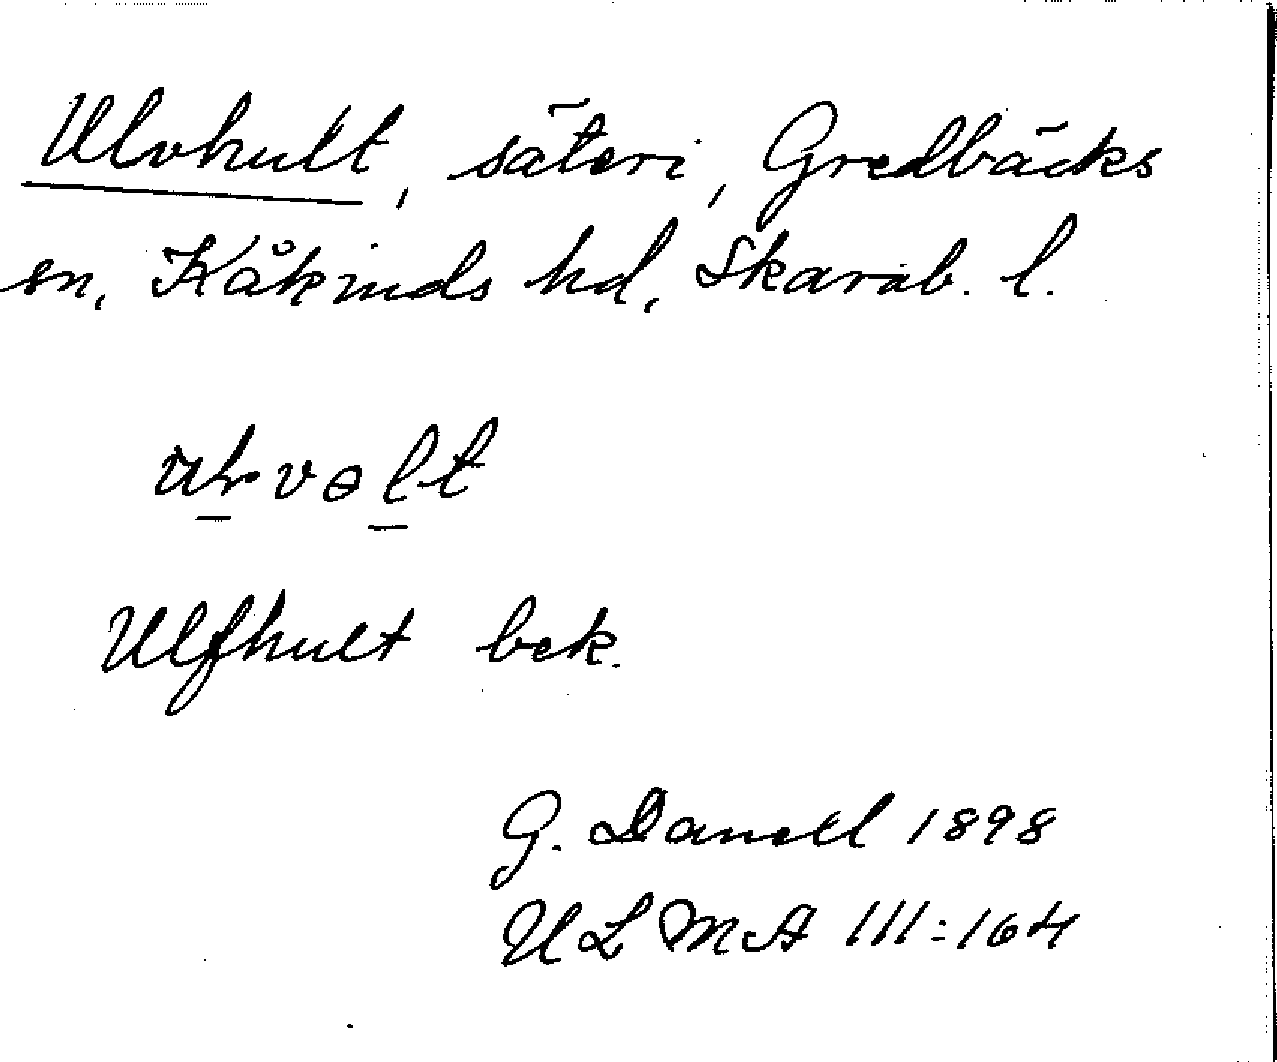 Ulvhult, säteri, Gredbäcks
sn, Kåkinds hd, Skarab. l.
Ulfhult bek.
G. Danell 1898
ULMA 111:164